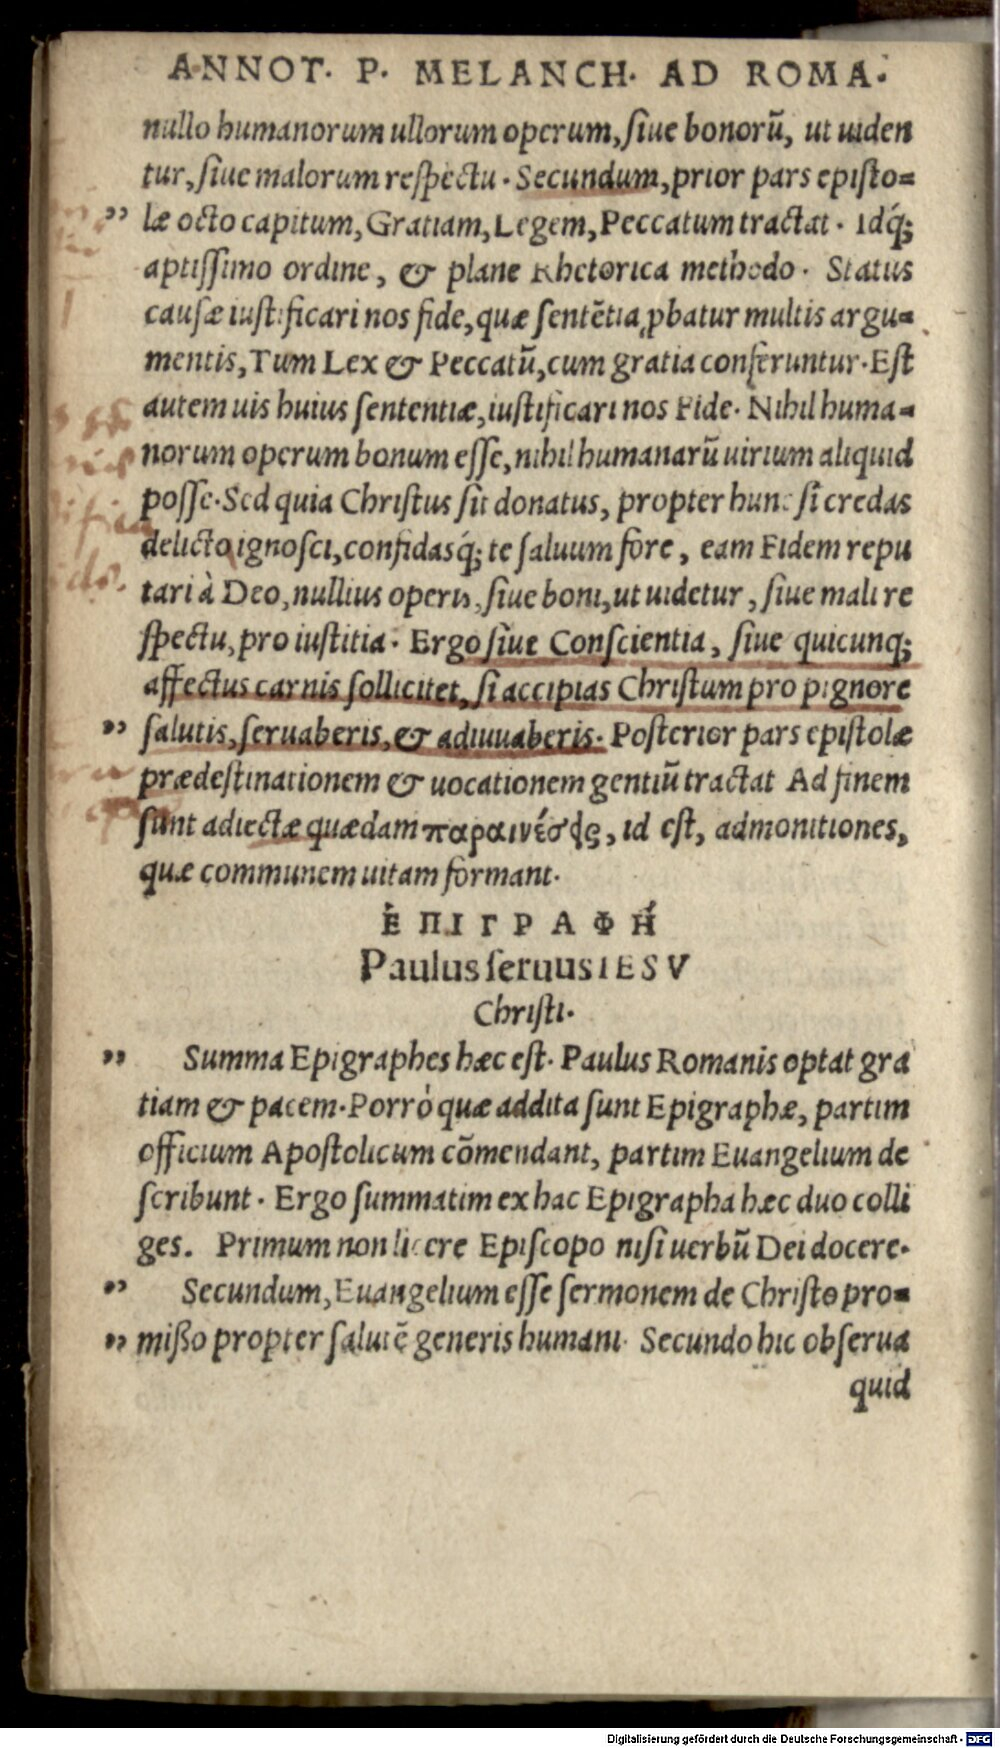 ANNOT· P· MELANCH· AD ROMA·
nullo humanorum ullorum operum, ſiue bonorũ, ut uiden
tur, ſiue malorum reſpectu · Secundum, prior pars epiſto=
læ octo capitum, Gratiam, Legem, Peccatum tractat · Idq́;
aptiſſimo ordine, & plane Rhetorica methodo · Status
cauſæ iuſtificari nos fide, quæ ſentẽtia ꝓbatur multis argu=
mentis, Tum Lex & Peccatũ, cum gratia conferuntur · Eſt
autem uis huius ſententiæ, iuſtificari nos Fide · Nihil huma=
norum operum bonum eſſe, nihil humanarũ uirium aliquid
poſſe · Sed quia Chriſtus ſit donatus, propter hunc ſi credas
delicto ignoſci, confidasq́; te ſaluum fore, eam Fidem repu
tari à Deo, nullius operis, ſiue boni, ut uidetur, ſiue mali re
ſpectu, pro iuſtitia · Ergo ſiue Conſcientia, ſiue quicunq;
affectus carnis ſollicitet, ſi accipias Chriſtum pro pignore
ſalutis, ſeruaberis, & adiuuaberis · Poſterior pars epiſtolæ
prædeſtinationem & uocationem gentiũ tractat Ad finem
ſunt adiectæ quædam παραινέσεις, id eſt, admonitiones,
quæ communem uitam formant ·
ἘΠΙΓΡΑΦΉ
Paulus ſeruus IESV
Chriſti ·
Summa Epigraphes hæc eſt · Paulus Romanis optat gra
tiam & pacem · Porrò quæ addita ſunt Epigraphæ, partim
officium Apoſtolicum cõmendant, partim Euangelium de
ſcribunt · Ergo ſummatim ex hac Epigrapha hæc duo colli
ges. Primum non licere Epiſcopo niſi uerbũ Dei docere ·
Secundum, Euangelium eſſe ſermonem de Chriſto pro=
mißo propter ſalutẽ generis humani · Secundo hic obſerua
quid
Digitalisierung gefördert durch die Deutsche Forschungsgemeinschaft - DFG